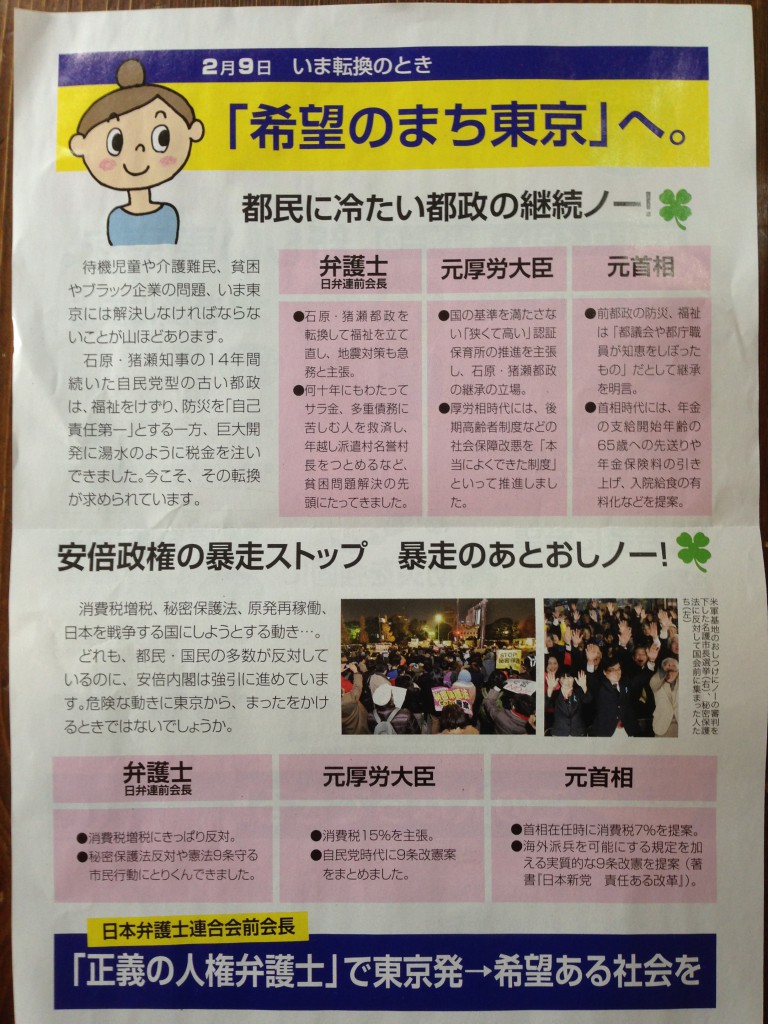 2月9日 いま転換のとき
「希望のまち東京」へ。
都民に冷たい都政の継続ノー!
待機児童や介護難民、貧困
やブラック企業の問題、いま東
京には解決しなければならな
いことが山ほどあります。
石原・猪瀬知事の14年間
続いた自民党型の古い都政
は、福祉をけずり、防災を「自己
責任第一」とする一方、巨大開
発に湯水のように税金を注い
できました。今こそ、その転換
が求められています。
弁護士
日弁連前会長
●石原・猪瀬都政を
転換して福祉を立て
直し、地震対策も急
務と主張。
●何十年にもわたって
サラ金、多重債務に
苦しむ人を救済し、
年越し派遣村名誉村
長をつとめるなど、
貧困問題解決の先
頭にたってきました。
元厚労大臣
●国の基準を満たさな
い「狭くて高い」認証
保育所の推進を主張
し、石原・猪瀬都政
の継承の立場。
●厚労相時代には、後
期高齢者制度などの
社会保障改悪を「本
当によくできた制度」
といって推進しまし
た。
元首相
●前都政の防災、福祉
は「都議会や都庁職
員が知恵をしぼった
もの」だとして継承
を明言。
●首相時代には、年金
の支給開始年齢の
65歳への先送りや
年金保険料の引き
上げ、入院給食の有
料化などを提案。
安倍政権の暴走ストップ 暴走のあとおしノー!
消費税増税、秘密保護法、原発再稼働、
日本を戦争する国にしようとする動き…。
どれも、都民・国民の多数が反対して
いるのに、安倍内閣は強引に進めていま
す。危険な動きに東京から、まったをかけ
るときではないでしょうか。
STOP
米軍基地のおしつけにノーの審判を
下した名護市長選挙(右)、秘密保護
法に反対して国会前に集まった人た
ち(左)
弁護士
日弁連前会長
●消費税増税にきっぱり反対。
●秘密保護法反対や憲法9条守る
市民行動にとりくんできました。
元厚労大臣
●消費税15%を主張。
●自民党時代に9条改憲案
をまとめました。
元首相
●首相在任時に消費税7%を提案。
●海外派兵を可能にする規定を加
える実質的な9条改憲を提案(著
書『日本新党 責任ある改革』)。
日本弁護士連合会前会長
「正義の人権弁護士」で東京発→希望ある社会を